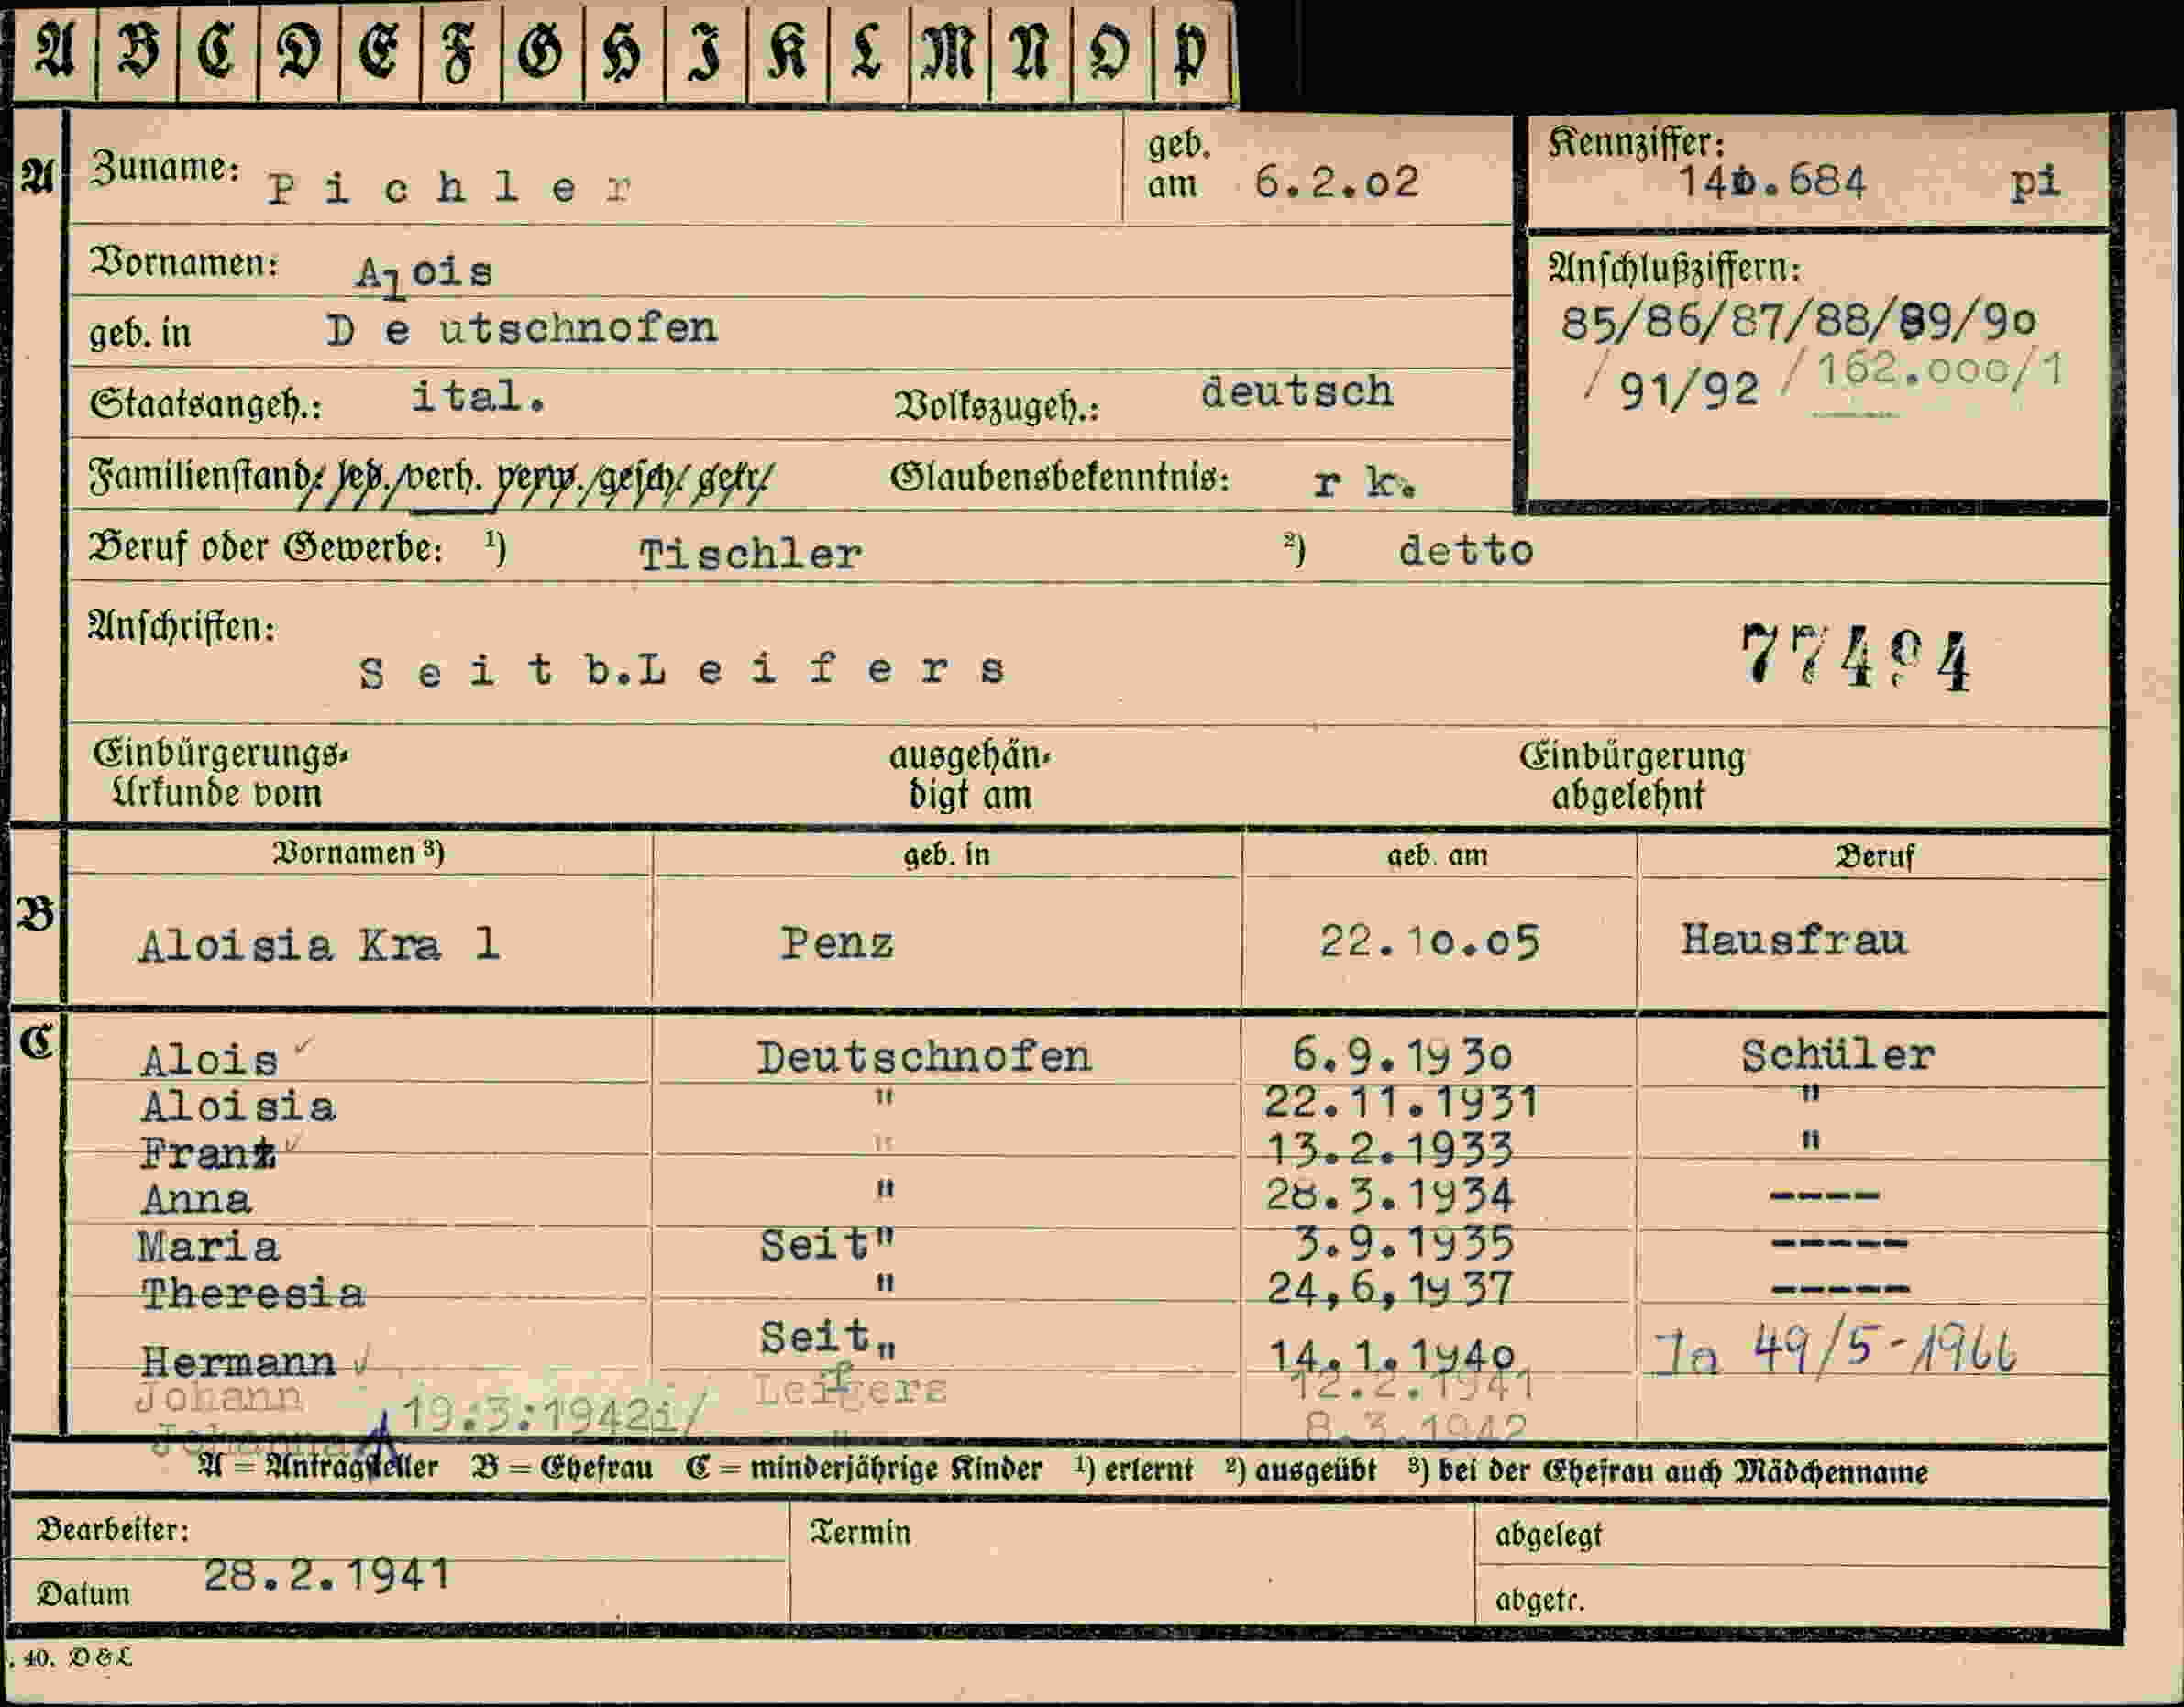 A B C D E F G H I K L M N O P
A Zuname: Pichler geb. am 6.2.02 Kennziffer: 140.684 pi
Vornamen: Alois Anschlußziffern:
geb. in Deutschnofen 85/86/87/88/89/90
Staatsangeh.: ital. Volkszugeh.: deutsch / 91/92 / 162.000/1
Familienstand: led./verh. verw./gesch/ getr/ Glaubensbekenntnis: r k.
Beruf oder Gewerbe: ¹) Tischler ²) detto
Anschriften:
Seit b.Leifers 77494
Einbürgerungs- Urkunde vom ausgehän- digt am Einbürgerung abgelehnt
Vornamen ³) geb. in geb. am Beruf
B Aloisia Kra l Penz 22.10.05 Hausfrau
C Alois ✓ Deutschnofen 6.9.1930 Schüler
Aloisia " 22.11.1931 "
Franz ✓ " 13.2.1933 "
Anna " 28.3.1934 ----
Maria Seit" 3.9.1935 -----
Theresia " 24,6,1937 -----
Hermann ✓ Seit„ 14.1.1940 Ja 49/5-1966
Johann Leifers 12.2.1941
Johanna 19.3.1942i/ " 8.3.1942
A = Antragsteller B = Ehefrau C = minderjährige Kinder ¹) erlernt ²) ausgeübt ³) bei der Ehefrau auch Mädchenname
Bearbeiter: Termin abgelegt
Datum 28.2.1941 abgetr.
. 40. D&L